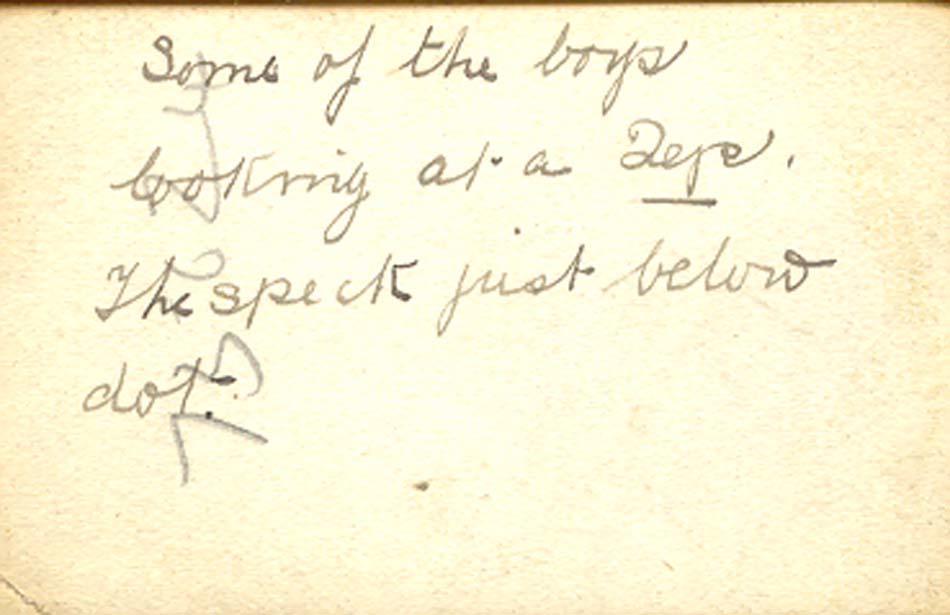 Some of the boys
looking at a Zepp.
The speck just below
dot.